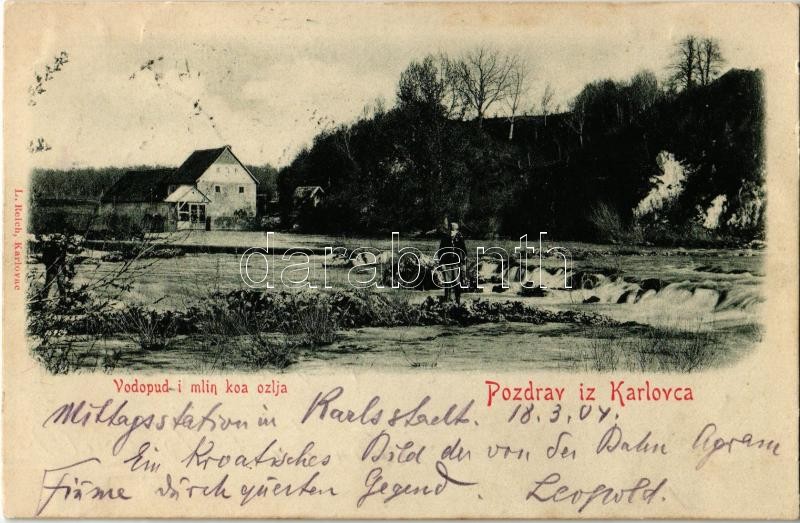 L. Reich, Karlovac
darabanth
Vodopud i mlin koa ozlja
Pozdrav iz Karlovca
Mittagsstation in Karlsstadt. 18.3.04.
Ein Kroatisches Bild der von der Bahn Agram
Fiume durchquerten Gegend. Leopold.